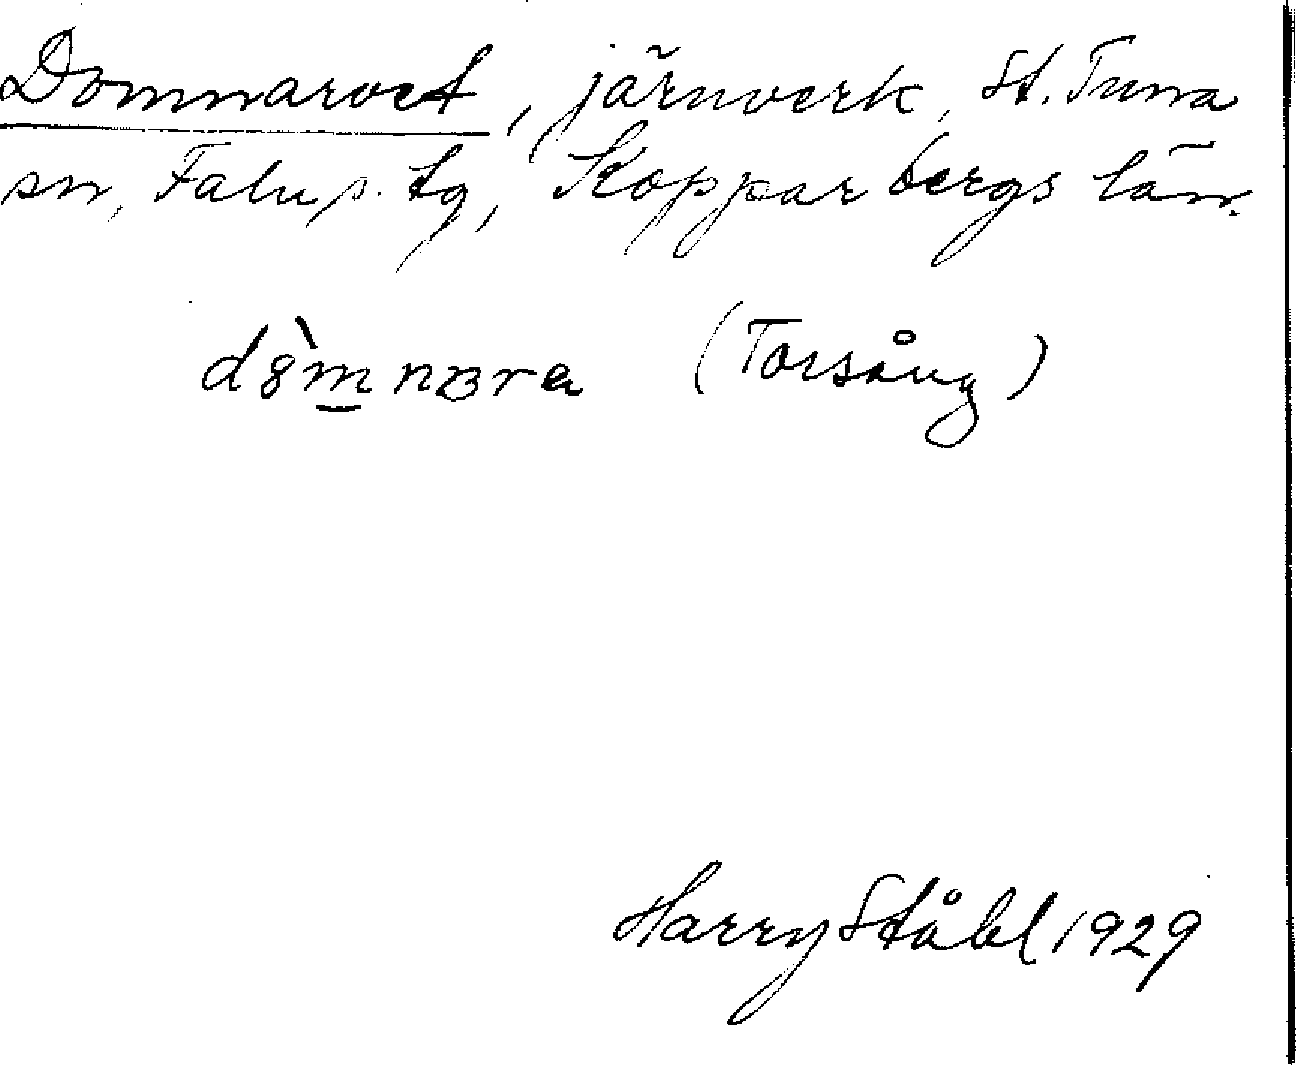 Domnarvet, järnverk, St. Tuna
sn, Falu s. tg, Kopparbergs län.
(Torsång)
Harry Ståhl 1929